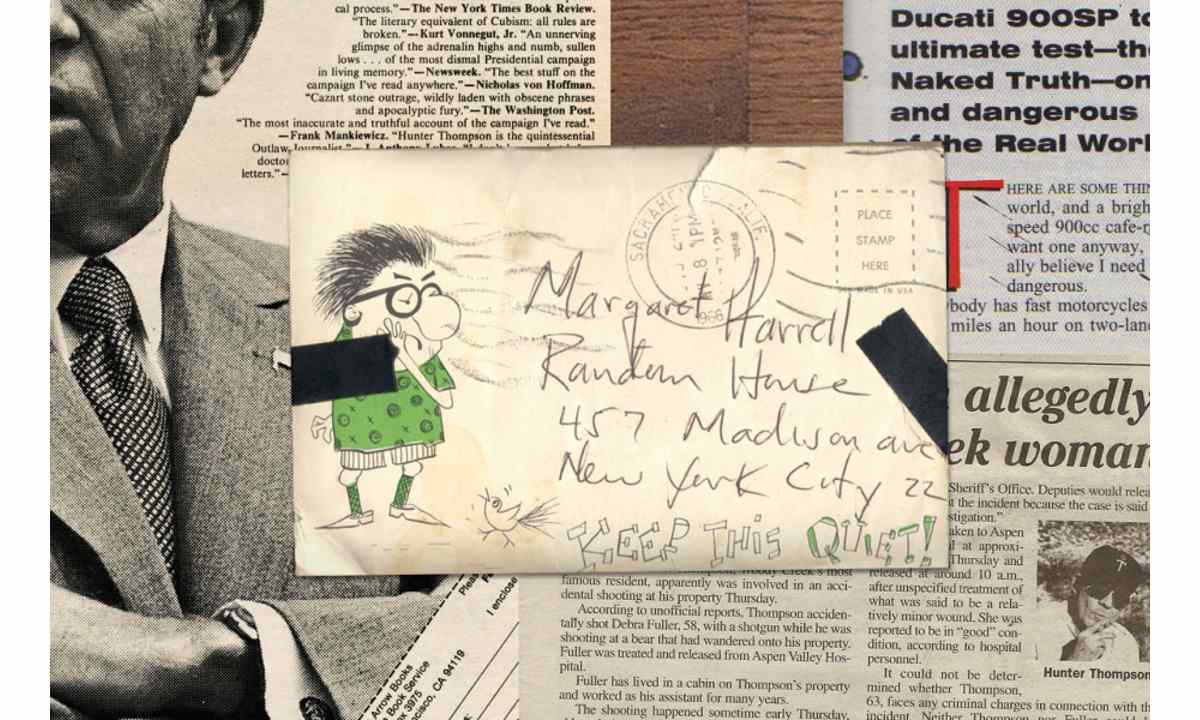 cal process."—The New York Times Book Review.
"The literary equivalent of Cubism: all rules are
broken."—Kurt Vonnegut, Jr. "An unnerving
glimpse of the adrenalin highs and numb, sullen
lows . . . of the most dismal Presidential campaign
in living memory."—Newsweek. "The best stuff on the
campaign I've read anywhere."—Nicholas von Hoffman.
"Cazart stone outrage, wildly laden with obscene phrases
and apocalyptic fury."—The Washington Post.
"The most inaccurate and truthful account of the campaign I've read."
—Frank Mankiewicz. "Hunter Thompson is the quintessential
Outlaw Journalist."—J. Anthony Lukas.
letters."—
Ducati 900SP to
ultimate test—the
Naked Truth—on
and dangerous
of the Real Worl
THERE ARE SOME THIN
world, and a brigh
speed 900cc cafe-r
want one anyway,
ally believe I need
dangerous.
body has fast motorcycles
miles an hour on two-lan
SACRAMENTO CALIF.
8 1PM
1966
PLACE
STAMP
HERE
MADE IN USA
Margaret Harrell
Random House
457 Madison ave
New York City 22
KEEP THIS QUIET!
allegedly
ek woman
Sheriff's Office. Deputies would relea
t the incident because the case is said
stigation."
aken to Aspen
l at approxi-
Thursday and
released at around 10 a.m.,
after unspecified treatment of
what was said to be a rela-
tively minor wound. She was
reported to be in "good" con-
dition, according to hospital
personnel.
It could not be deter-
mined whether Thompson,
63, faces any criminal charges in connection with th
incident. Neither Thompson nor Fuller
T
Hunter Thompson
famous resident, apparently was involved in an acci-
dental shooting at his property Thursday.
According to unofficial reports, Thompson acciden-
tally shot Debra Fuller, 58, with a shotgun while he was
shooting at a bear that had wandered onto his property.
Fuller was treated and released from Aspen Valley Hos-
pital.
Fuller has lived in a cabin on Thompson's property
and worked as his assistant for many years.
The shooting happened sometime early Thursday,
Arrow Books
Book Service
ox 3975
cisco, CA 94119
Pleas
I enclose